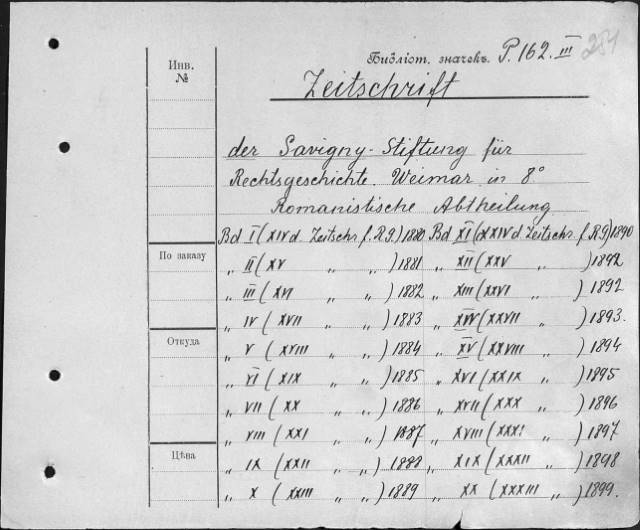 Инв. №
Библіот. значекъ. P. 162. III
281
Zeitschrift
der Savigny-Stiftung für
Rechtsgeschichte. Weimar in 8°
Romanistische Abtheilung
Bd I (XIV d. Zeitschr. f. R.G.) 1880 Bd XI (XXIV d. Zeitschr. f. R.G.) 1890
По заказу
„ II (XV „ „ ) 1881 „ XII (XXV „ ) 1892
„ III (XVI „ „ ) 1882 „ XIII (XXVI „ ) 1892
„ IV (XVII „ „ ) 1883 „ XIV (XXVII „ ) 1893.
Откуда
„ V (XVIII „ „ ) 1884 „ XV (XXVIII „ ) 1894
„ VI (XIX „ „ ) 1885 „ XVI (XXIX „ ) 1895
„ VII (XX „ „ ) 1886 „ XVII (XXX „ ) 1896
„ VIII (XXI „ „ ) 1887 „ XVIII (XXXI „ ) 1897
Цѣна
„ IX (XXII „ „ ) 1888 „ XIX (XXXII „ ) 1898
„ X (XXIII „ „ ) 1889 „ XX (XXXIII „ ) 1899.